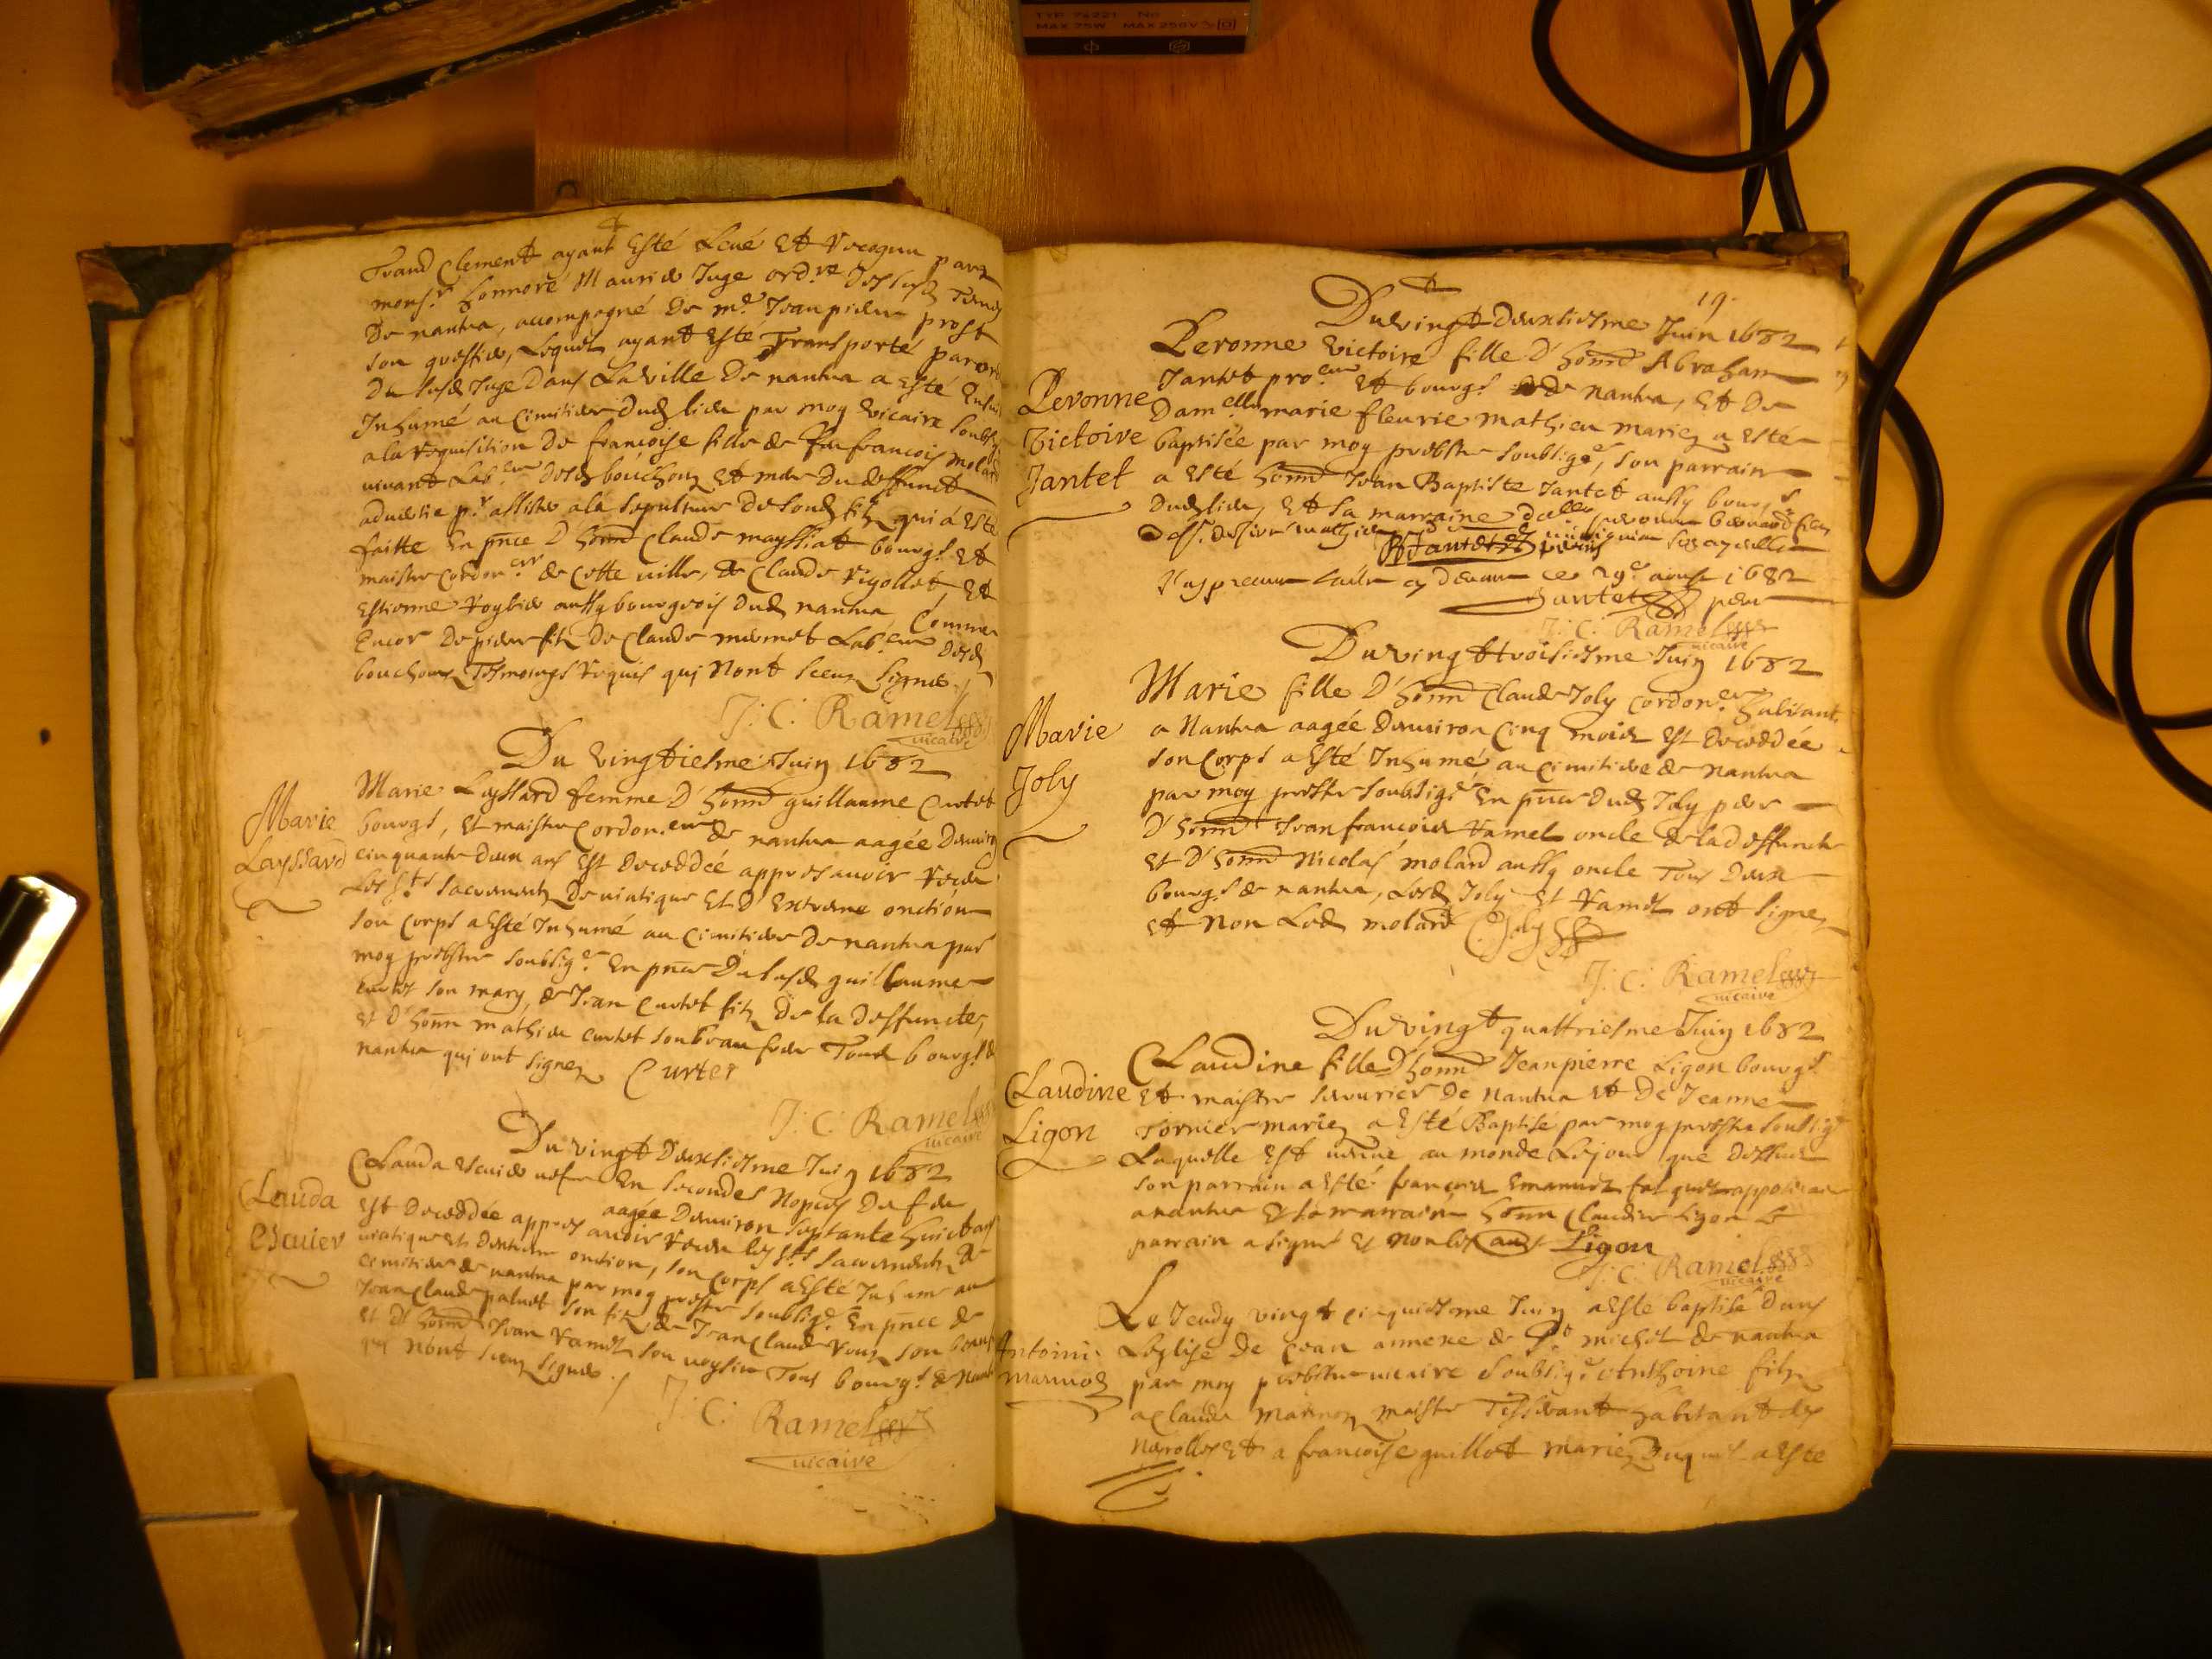 TYP 74221 No
MAX 25W MAX 250V
Trand Clement ayant Esté Levé Et recognu par
mons.r honnoré Mauries Juge ord.re
De nantua, accompagné De m.e Jean pierre prost
son greffier, Lequel ayant Esté Transporté par
Du Juge Dans La ville De nantua a Esté
Inhumé au Cimitiere dud lieu par moy vicaire
a la requisition De francoise fille de feu francois molard
vivant Lab.eur bouchoux Et mere Du deffunct
p.r assister a la sepulture De soud filz qui a Esté
faitte En pnce D'honn Claude mayssiat bourgs Et
maistre Cordon.er de Cette ville, De Claude Vigollet, Et
Estienne aussy bourgeois dud nantua Comme
Encor De pierre filz De Claude mermet Lab.eur
bouchoux Tesmoings requis qui Nont sceu signer
J: C: Ramel
vicaire
Du vingtiesme Juin 1682
Marie
Layssard
Marie Layssard femme D'honn guillaume Curtet
bourgs, Et maistre Cordon.eur de nantua aagée Denviron
cinquante deux ans Est Deceddée appres avoir receu
Les S.ts sacrements De viatique Et D'Extreme onction
son Corps a Esté Inhumé au Cimitiere De nantua par
moy prebstre soubsig.é En pnce Du guillaume
curtet son mary, de Jean Curtet filz De la Deffuncte,
Et D'honn mathieu curtet son beau frere Tous bourgs de
nantua qui ont signez Curtet
J: C: Ramel
vicaire
Du vingt Deuxiesme Juin 1682
Clauda
Escuier
Clauda Escuier vefve En secondes Nopces De feu
aagée Denviron septante huict ans
Est Deceddée appres avoir receu les S.ts sacrements de
viatique Et Dextreme onction, son Corps a Esté Inhumé au
cimitiere de nantua par moy prebstre soubsig.é En pnce de
Jean Claude paluet son filz, de Jean Claude son beau
Et D'honn Jean Ramel son voysin Tous bourgs de Nantua
qui n'ont sceu signer.
J: C: Ramel
vicaire
19.
Du vingt Deuxiesme Juin 1682
Peronne
Victoire
Jantet
Peronne Victoire fille D'honn Abraham
Jantet pro.eur Et bourgs de nantua, Et De
Dam.elle marie fleurie mathieu mariez a Esté
baptisée par moy prebstre soubsigé, son parrain
a Esté honn Jean Baptiste Jantet aussy bourgs
Dud lieu, Et Sa marraine d.elle
Jantet
ce 29.e aoust 1682
Jantet pere
J: C: Ramel
vicaire
Du vingt troisiesme Juin 1682
Marie
Joly
Marie fille D'honn Claude Joly Cordon.er habitant
a Nantua aagée Denviron Cinq mois Est Deceddée
son Corps a Esté Inhumé au Cimitiere de nantua
par moy prebstre soubsigé En pnce Dud Joly pere
D'honn Jean francois Ramel oncle de la deffuncte
Et D'honn Nicolas molard aussy oncle Tous Deux
bourgs de nantua, Lesd Joly Et Ramel ont signez
Et Non Led molard C. Joly
J: C: Ramel
vicaire
Du vingt quattriesme Juin 1682
Claudine
Ligon
Claudine fille D'honn Jean pierre Ligon bourgs
Et maistre serrurier De Nantua Et De Jeanne
Tornier mariez a Esté Baptisé par moy prebstre soubsigé
Laquelle Est venue au monde Le jour que Dessus
son parrain a Esté francois Emanuel
a nantua Et la marraine honn Claudine Ligon Le
parrain a signé Et non les Ligon
J: C: Ramel
vicaire
Antoine
marmod
Le Jeudy vingt cinquiesme Juin a Esté baptisé dans
Leglise De annexe de S.t michel de nantua
par moy prebstre vicaire soubsigé Anthoine filz
a Claude maistre Tisserant habitant des
Neyrolles Et a francoise guillot mariez Duquel a Esté